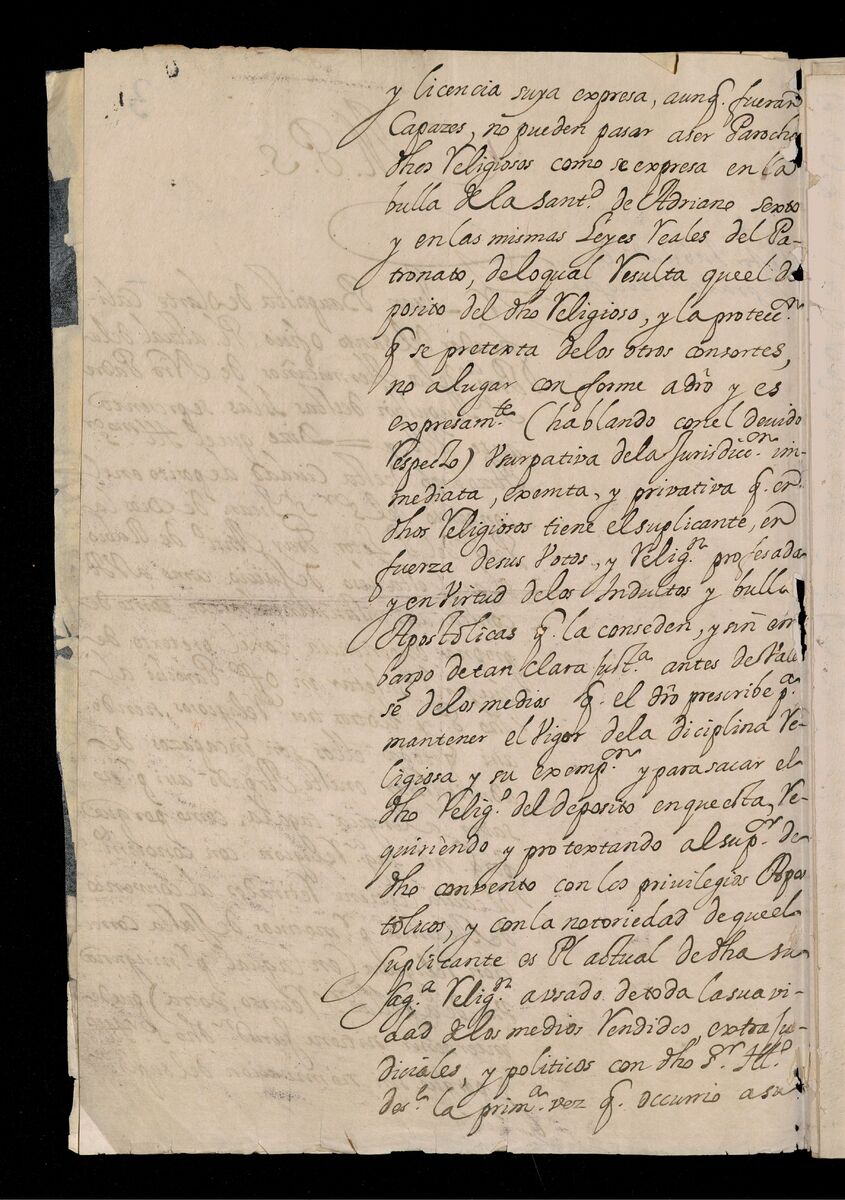 y licencia suya expresa, aunq. fueran
Capazes, no pueden pasar a ser Parochos
dhos Religiosos como se expresa en la
bulla de la Santd. de Adriano sexto
y en las mismas Leyes Reales del Pa-
tronato, delo qual Resulta que el de
posito del dho Religioso, y la protecn.
q se pretexta delos otros consortes,
no a lugar conforme a dro y es
expresamte. (hablando con el devido
Respecto) Vsurpativa dela Jurisdicn. im-
mediata, exemta, y privativa q. en
dhos Religiosos tiene el suplicante, en
fuerza de sus Votos, y Relign. profesada
y en Virtud delos Indultos y bullas
Apostolicas q. la conseden, y sin em
bargo de tan clara Justa. antes de Vale
se de los medios q. el dro prescribe pa.
mantener el Vigor dela diciplina Re-
ligiosa y su exempn. y para sacar el
dho Religo. del deposito en que esta, Re-
quiriendo y protextando al supr. de
dho convento con los privilegios Apos
tolicos, y con la notoriedad de que el
suplicante es Pl actual de dha su
sag.a Relign. a usado de toda la suavi-
dad de los medios Rendidos, extraju-
diciales, y politicos con dho Sr. Illo.
desde la prima. vez q. occurrio a su